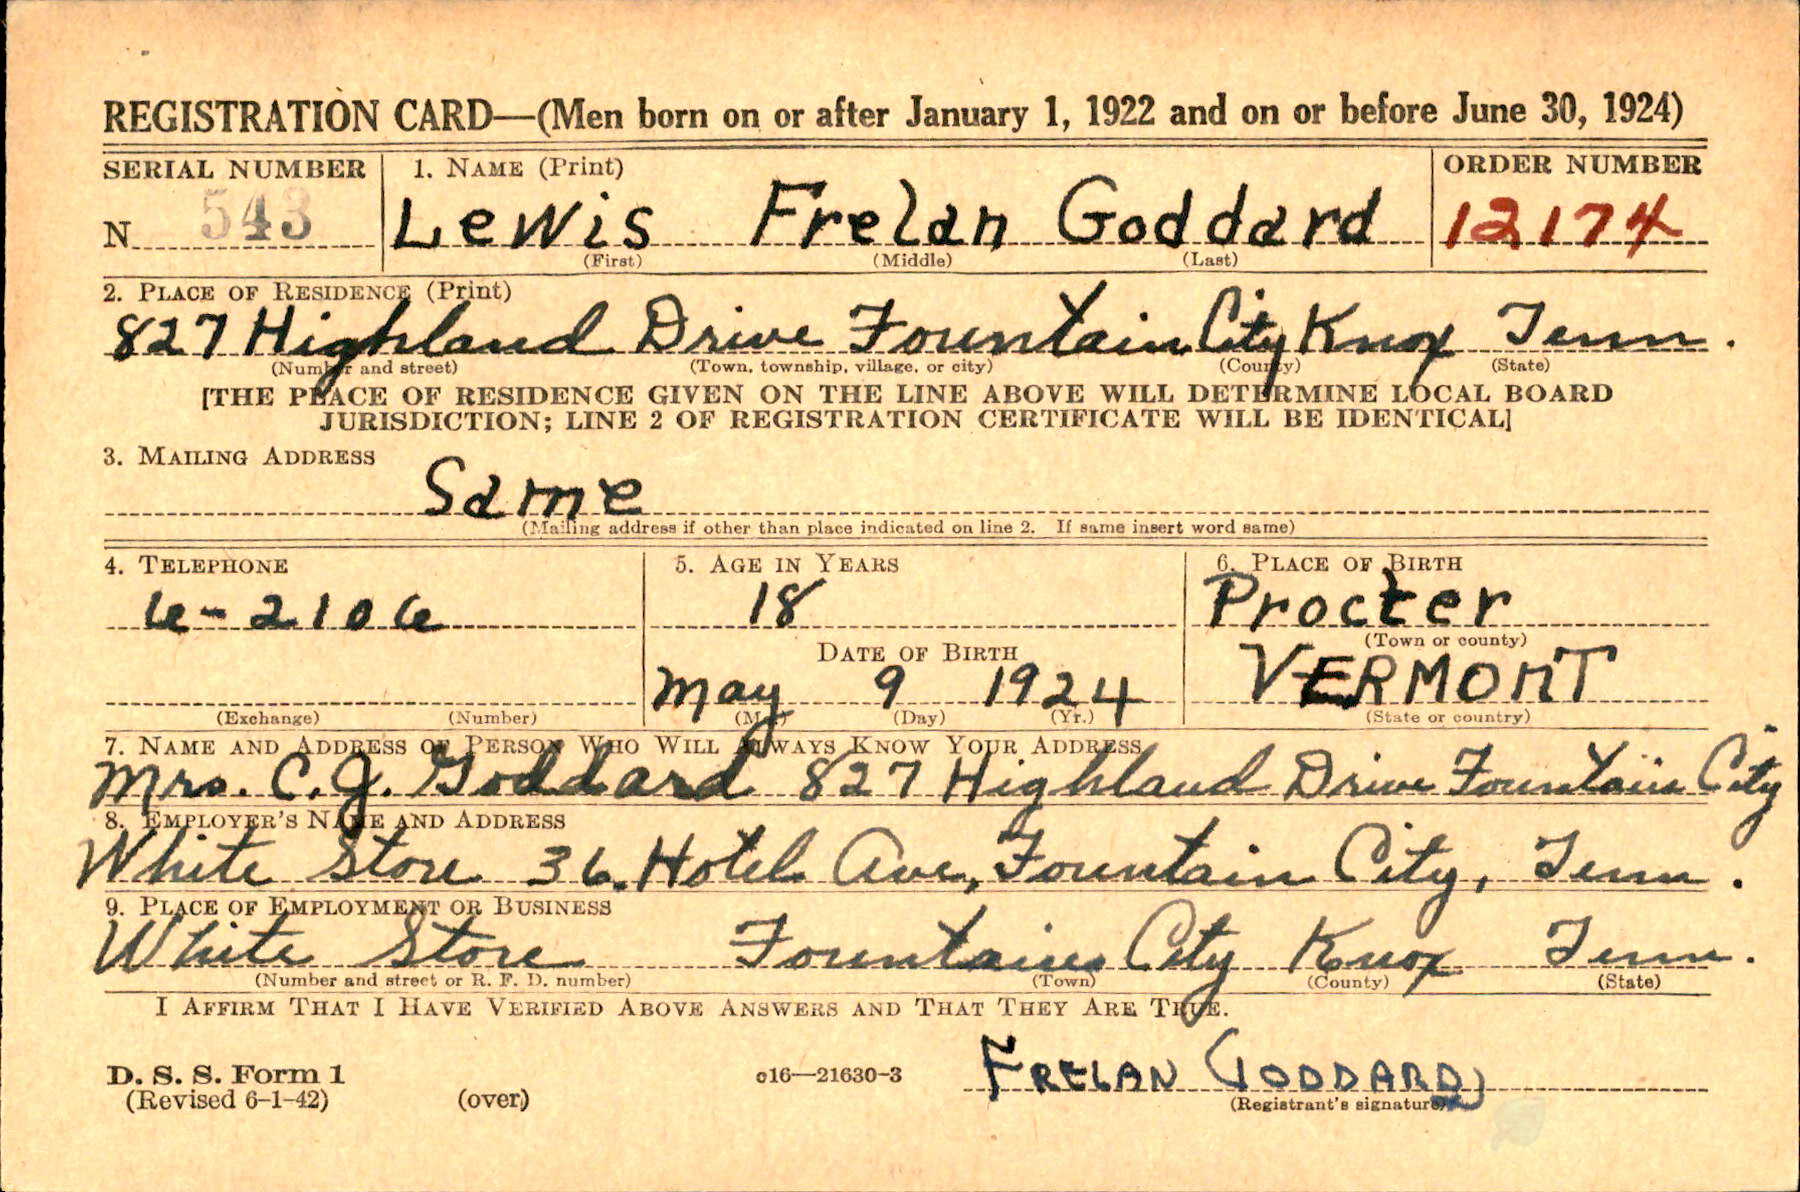 REGISTRATION CARD—(Men born on or after January 1, 1922 and on or before June 30, 1924)
SERIAL NUMBER 1. NAME (Print) ORDER NUMBER
N 543 Lewis Frelan Goddard 12174
(First) (Middle) (Last)
2. PLACE OF RESIDENCE (Print)
827 Highland Drive Fountain City Knox Tenn.
(Number and street) (Town, township, village, or city) (County) (State)
[THE PLACE OF RESIDENCE GIVEN ON THE LINE ABOVE WILL DETERMINE LOCAL BOARD
JURISDICTION; LINE 2 OF REGISTRATION CERTIFICATE WILL BE IDENTICAL]
3. MAILING ADDRESS
Same
(Mailing address if other than place indicated on line 2. If same insert word same)
4. TELEPHONE 5. AGE IN YEARS 6. PLACE OF BIRTH
6-2106 18 Procter
(Town or county)
DATE OF BIRTH
May 9 1924 VERMONT
(Exchange) (Number) (Mo.) (Day) (Yr.) (State or country)
7. NAME AND ADDRESS OF PERSON WHO WILL ALWAYS KNOW YOUR ADDRESS
Mrs. C. J. Goddard 827 Highland Drive Fountain City
8. EMPLOYER'S NAME AND ADDRESS
White Store 36. Hotel Ave, Fountain City, Tenn.
9. PLACE OF EMPLOYMENT OR BUSINESS
White Store Fountain City Knox Tenn.
(Number and street or R. F. D. number) (Town) (County) (State)
I AFFIRM THAT I HAVE VERIFIED ABOVE ANSWERS AND THAT THEY ARE TRUE.
D. S. S. Form 1 c16—21630-3 FRELAN GODDARD
(Revised 6-1-42) (over) (Registrant's signature)